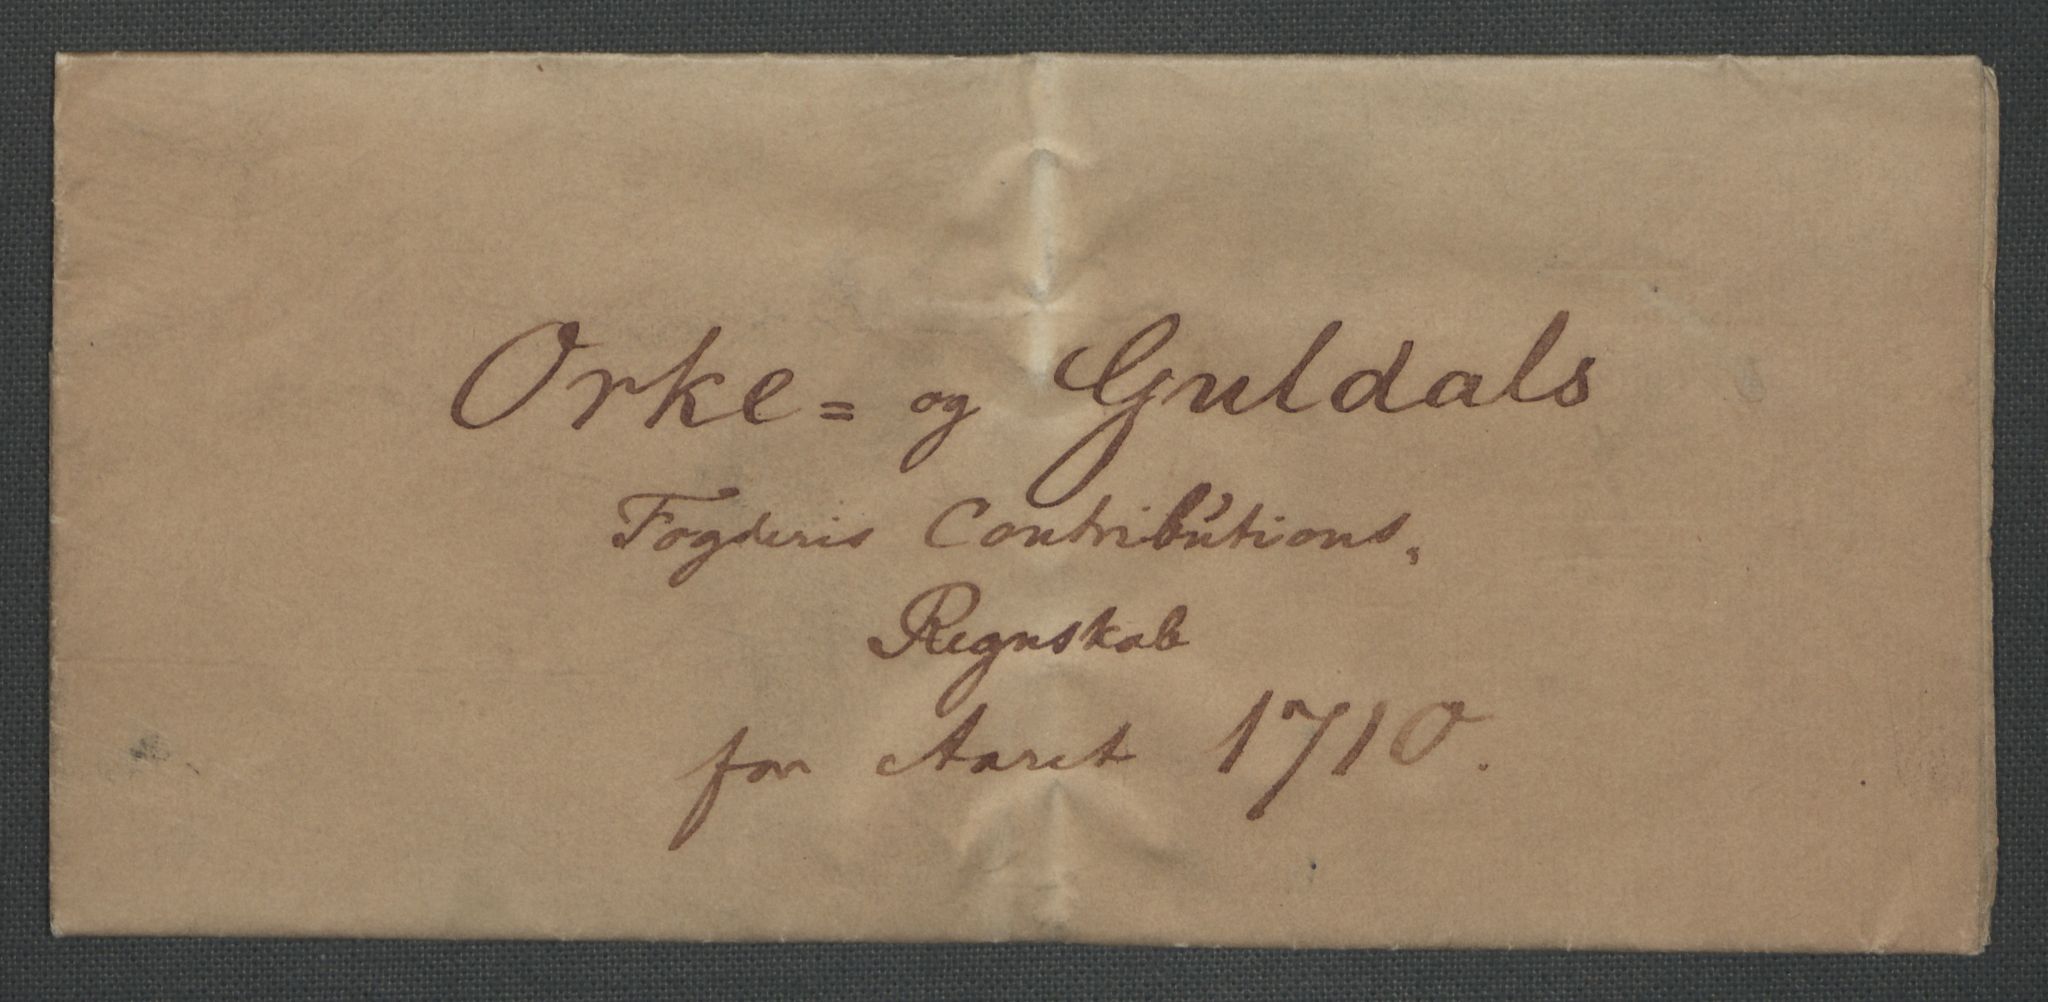 Orke= og Guldals
Fogderis Contributions,
Regnskab
for Aaret 1710.